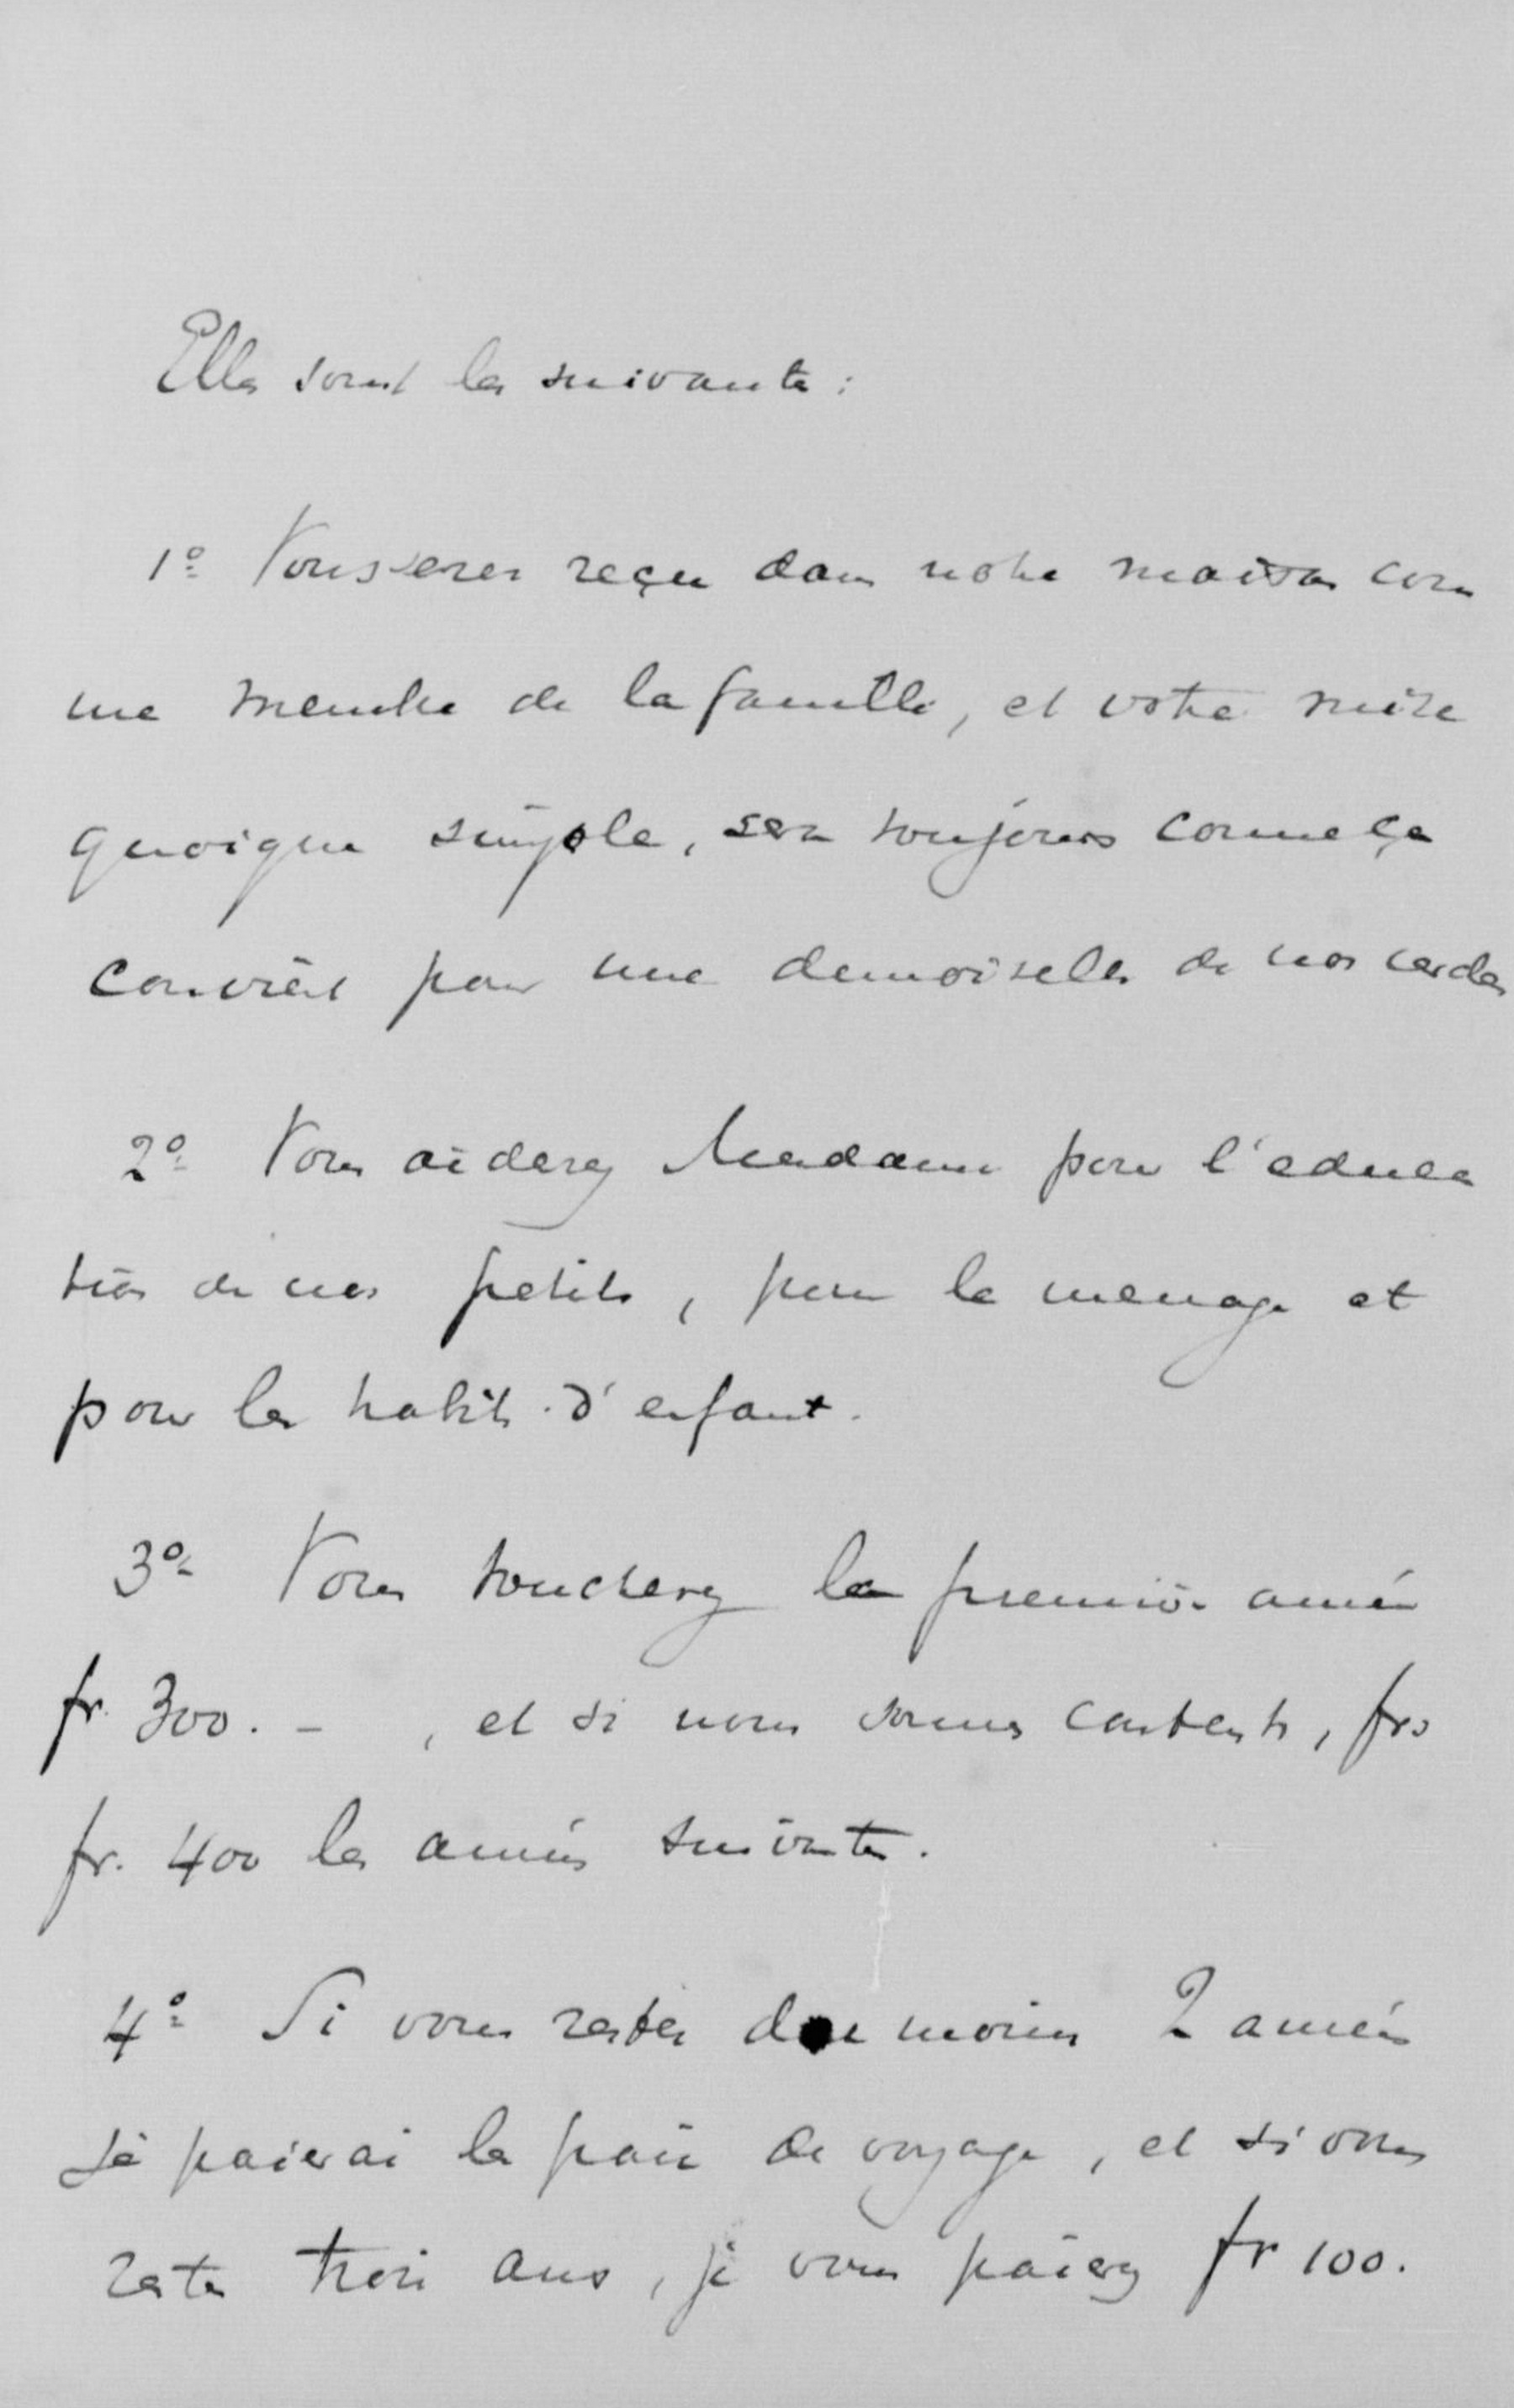 Elles sont les suivantes :
1º Vous serez reçu dans notre maison com
me membre de la famille, et votre mise
quoique simple, sera toujours comme ça
convient pour une demoiselle de nos cercles
2º Vous aiderez Madame pour l'educa
tion de nos petits, pour le menage et
pour les habits d'enfant.
3º Vous toucherez la première année
fr. 300. – , et si nous sommes contents, frs
fr. 400 les années suivantes.
4º Si vous restez du moins 2 années
je paierai le voyage, et si vous
restez trois ans, je vous paierez fr 100.